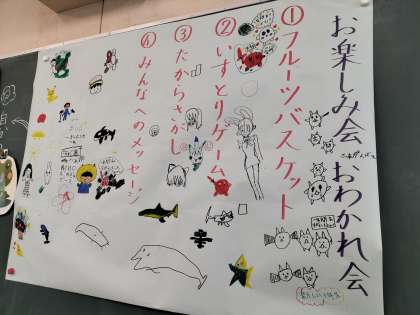 お楽しみ会 おわかれ会
①フルーツバスケット
②いすとりゲーム
③たからさがし
④みんなへのメッセージ